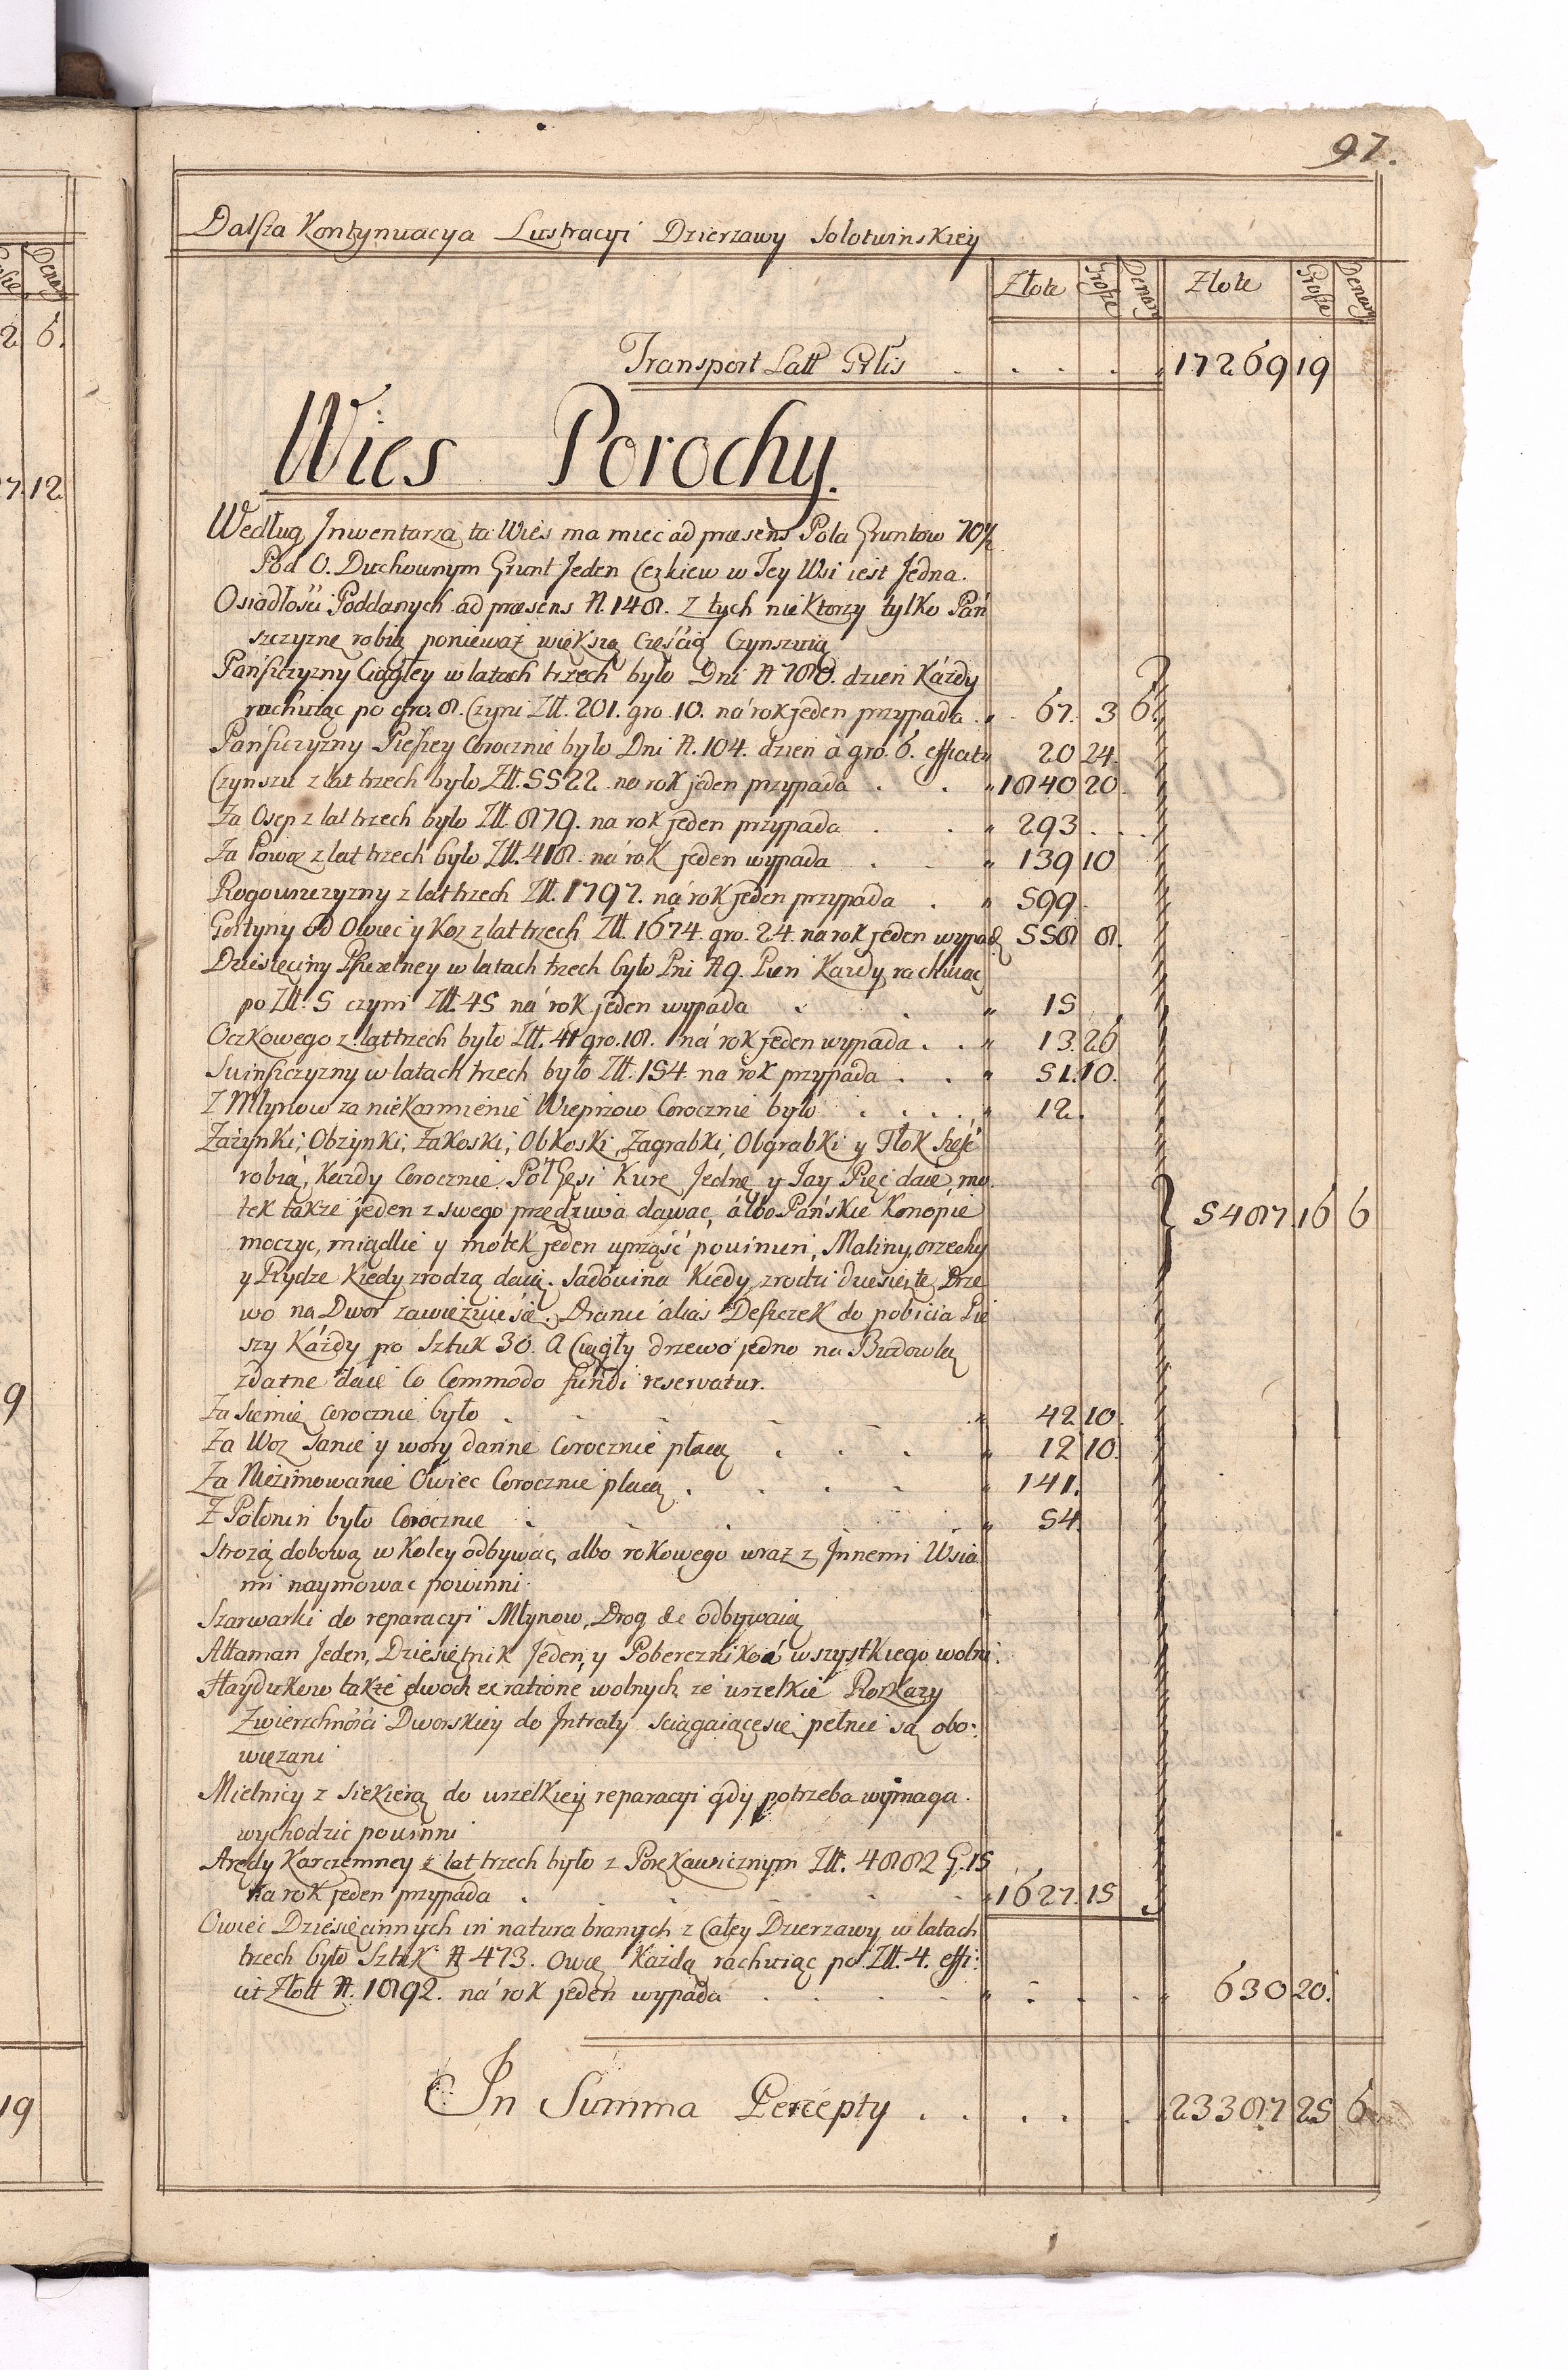 97.
Dalsza Kontynuacya Lustracyi Dzierzawy Solotwinskiey
Złote Grosze Denary Złote Grosze Denary
Transport Latt . . . . 17269 19
Wies Porochy.
Według Inwentarza ta Wies ma miec ad præsens Pola Gruntow 70½
Pod O. Duchownym Grunt Jeden Cerkiew w Tey Wsi iest Jedna.
Osiadłosci Poddanych ad præsens N. 148. Z tych niektorzy tylko Pań
szczyznę robią ponieważ większą Częścią Czynszuią
Pańszczyzny Ciągłey w latach trzech było Dni N 780. dzien Káżdy
rachuiąc po gro. 8. Czyni Złt. 201. gro. 10. ná rok jeden przypada . " 67. 3 6.
Pańszczyzny Pieszey Corocznie było Dni N. 104. dzien à gro. 6. efficit " 20 24.
Czynszu z lat trzech było Złt. 5522. na rok jeden przypada . . " 1840 20.
Za Osep z lat trzech było Złt. 879. na rok jeden przypada . . " 293 . . .
Za Powoz z lat trzech było Złt. 418. ná rok jeden wypada . . " 139 10
Rogowszczyzny z lat trzech Złt. 1797. ná rok jeden przypada . " 599.
od Owiec y Koz z lat trzech Złt. 1674. gro. 24. na rok jeden wypad. 558 8.
Dziesięciny Pszczelney w latach trzech było Pni N 9. Pień Kazdy rachuiąc
po Złt. 5 czyni Złt. 45 ná rok jeden wypada . . " 15
Oczkowego z lat trzech było Złt. 41 gro. 18. ná rok jeden wypada . . " 13. 26
Swinszczyzny w latach trzech było Złt. 154. na rok przypada . . " 51. 10.
Z Młynow za niekarmienie Wieprzow Corocznie było . . . . " 12.
Zażynki, Obzynki, Zakoski, Obkoski, Zagrabki, Obgrabki y Tłok sześć
robią, Kazdy Corocznie Pół Gęsi Kurę Jednę y Jay Pięć daie, mo
tek także jeden z swego przędziwa dawac, álbo Pańskie Konopie
moczyc, miądlic y motek jeden uprząść powinien, Maliny, orzechy } 5487. 16 6
y Rydze Kiedy zrodzą daią. Sadowina Kiedy zrodzi dziesięte Drze
wo na Dwor zawieźć się. Dranic alias Deszczek do pobicia Pie
szy Káżdy po Sztuk 30. A Ciągły drzewo jedno na Budowlą
zdatne daie Co Commodo fundi reservatur.
Za Siemię corocznie było . . . . . " 42 10.
Za Woz Sanie y woły danne Corocznie płacą . . . 12 10.
Za Niezimowanie Owiec Corocznie płacą . . . . " 141.
Z Połonin było Corocznie . . . . . " 54.
Strożą dobową w Koley odbywac, albo rokowego wraz z Innemi Wsia
mi naymowac powinni.
Szarwarki do reparacyi Młynow, Drog &c odbywaią
Attaman Jeden, Dziesiętnik Jeden, y Poberezniko wszystkiego wolni.
Haydukow także dwoch ex ratione wolnych ze wszelkie Rozkazy
Zwierzchności Dworskiey do Intraty sciągaiące się pełnic są obo:
wiązani
Mielnicy z Siekierą do wszelkiey reparacyi gdy potrzeba wymaga.
wychodzic powinni
Arędy Karczemney z lat trzech było z Porękawicznym Złt. 4882 G. 15
Na rok jeden przypada . . . . . " 1627. 15
Owiec Dziesięcinnych in natura branych z Całey Dzierzawy w latach
trzech było Sztuk N 473. Owcę Każdą rachuiąc po Złt. 4. effi:
cit Złott N. 1892. ná rok jeden wypada . . . . " . . . " 630 20.
In Summa Percepty . . . . . 23387 25 6